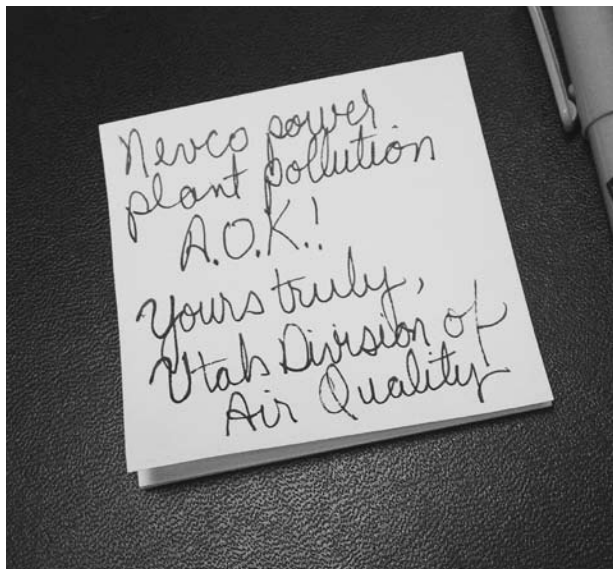 Nevco power
plant pollution
A.O.K.!
Yours truly,
Utah Division of
Air Quality